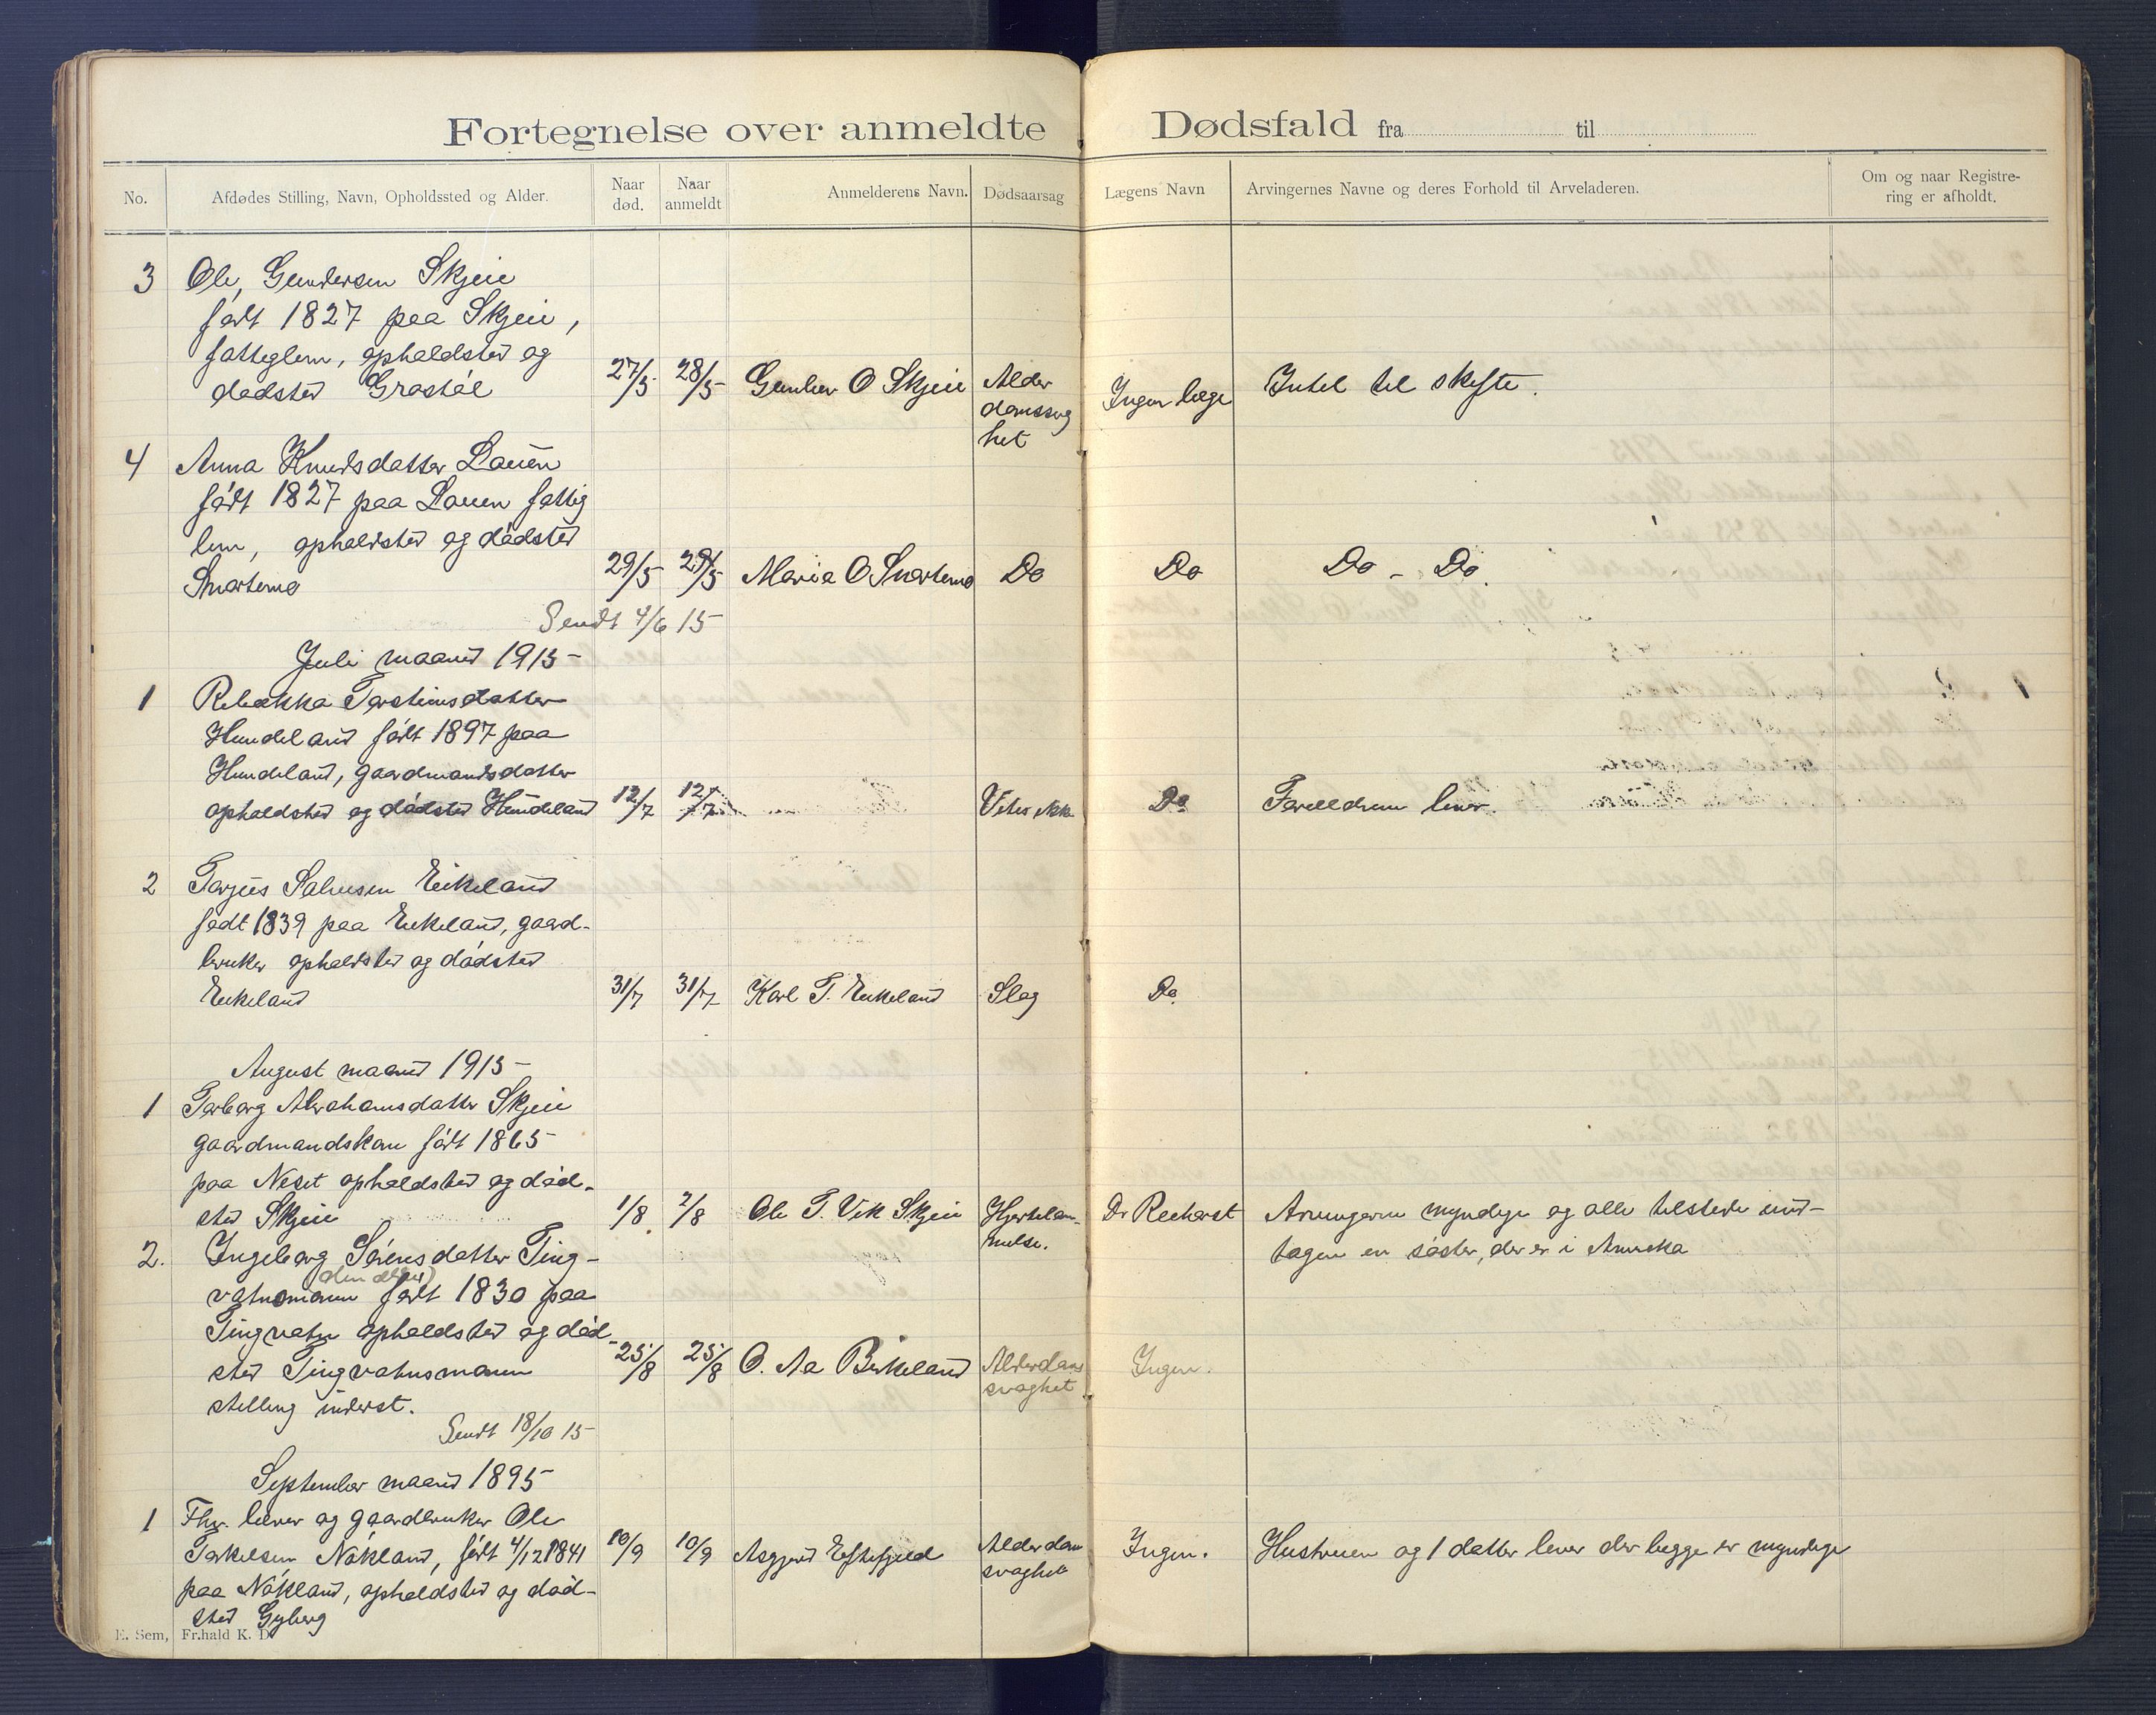 Fortegnelse over anmeldte Dødsfald fra til
No. Afdødes Stilling, Navn, Opholdssted og Alder. Naar død. Naar anmeldt Anmelderens Navn. Dødsaarsag Lægens Navn Arvingernes Navne og deres Forhold til Arveladeren. Om og naar Registrering er afholdt.
3 Ole, Gundersen Skjeie
født 1827 paa Skjeie,
fatteglem, opholdsted og
dødsted Grostøl 27/5 28/5 Gunder O Skjeie Alder Ingen læge Intet til skifte.
domssvag
het
4 Anna Knudsdatter Lauen
født 1827 paa Lauen fattig
lem, opholdsted og dødsted
Snartemo 29/5 29/5 Maria O Snartemo Do Do Do - Do.
Sendt 4/6 15
Juli maaned 1915
1 Rebekka Torstinsdatter
Hundeland født 1897 paa
Hundeland, gaardmandsdatter
opholdsted og dødsted Hundeland 12/7 12/7 Vites ikke Do Foreldrene lever.
2 Tarjus Salvesen Eikeland
født 1839 paa Eikeland, gaard-
bruker opholdsted og dødsted
Eikeland 31/7 31/7 Karl T. Eikeland Slag Do.
August maaned 1915
1 Torborg Abrahamsdatter Skjeie
gaardmandskone født 1865
paa Neset opholdsted og død-
sted Skjeie 1/8 2/8 Ole T. Vik Skjeie Hjertelam- Dr Arvingerne myndige og alle tilstede und-
melse. tagen en søster, der er i Amerika
2. Ingeborg Sørensdatter Ting-
vatnsmoen født 1830 paa
Tingvatn opholdsted og død-
sted Tingvatnsmoen 25/8 25/8 O. Aa Birkeland Alderdoms Ingen.
svaghet
stilling inderst.
Sendt 18/10 15
September maaned 1895
1 Fhv. lærer og gaardbruker Ole
Torkelsen Nökland, født 4/12 1841 10/9 10/9 Asgjerd Eftestøl Alderdom Ingen. Hustruen og 1 datter lever der begge er myndige
svaghet
paa Nökland, opholdsted og død-
sted Gyberg
E. Sem, Fr.hald K. D